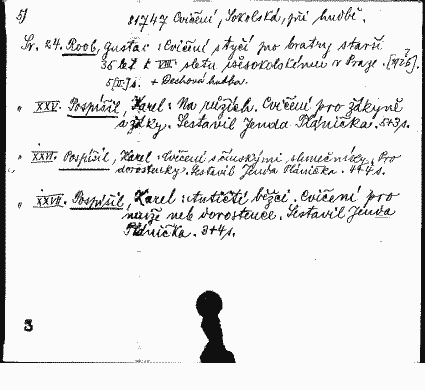 5)
21747 Cvičení, Sokolská, při hudbě.
Sv. 24. Roob, Gustav: Cvičení s tyčí pro bratry starší
35 let k VIII. sletu všesokolskému v Praze. [1926?].
5[II] s. + Dechová hudba.
" XXV. Pospíšil, Karel: Na růžích. Cvičení pro žákyně
a žáky. Sestavil Jenda Plánička. 5+3 s.
" XXVI. Pospíšil, Karel: Cvičení s čínskými slunečníky. Pro
dorostenky. Sestavil Jenda Plánička. 4+4 s.
" XXVII. Pospíšil, Karel: Antičtí běžci. Cvičení pro
muže neb dorostence. Sestavil Jenda
Plánička. 3+4 s.
3